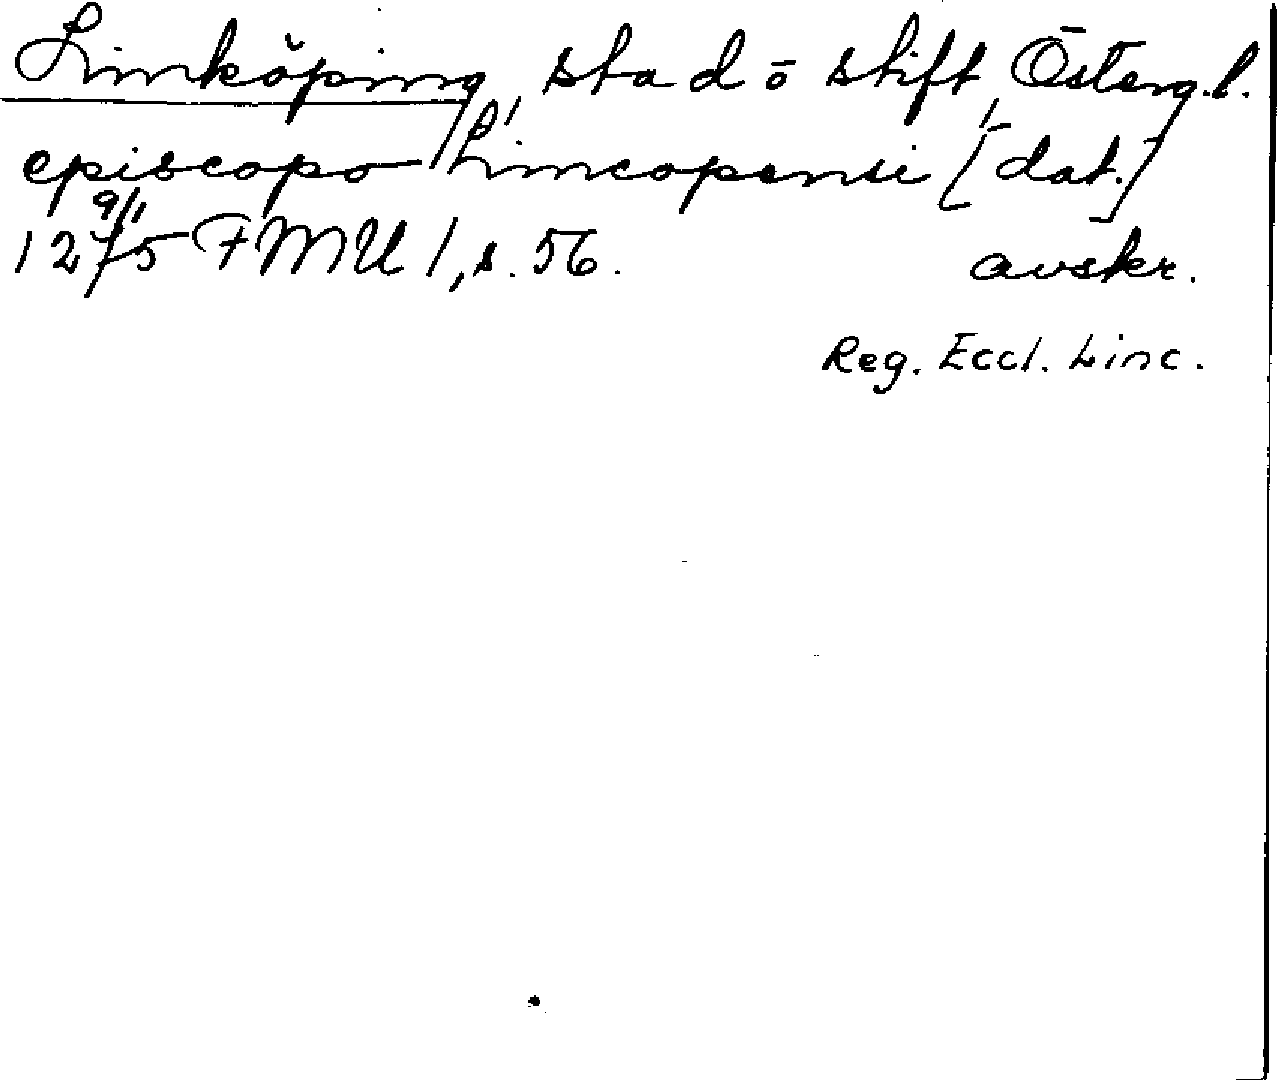 Linköping, stad o stift, Österg.l.
episcopo Lincopensi [dat.]
1275 9/1 FMU 1, s. 56. avskr.
Reg. Eccl. Linc.